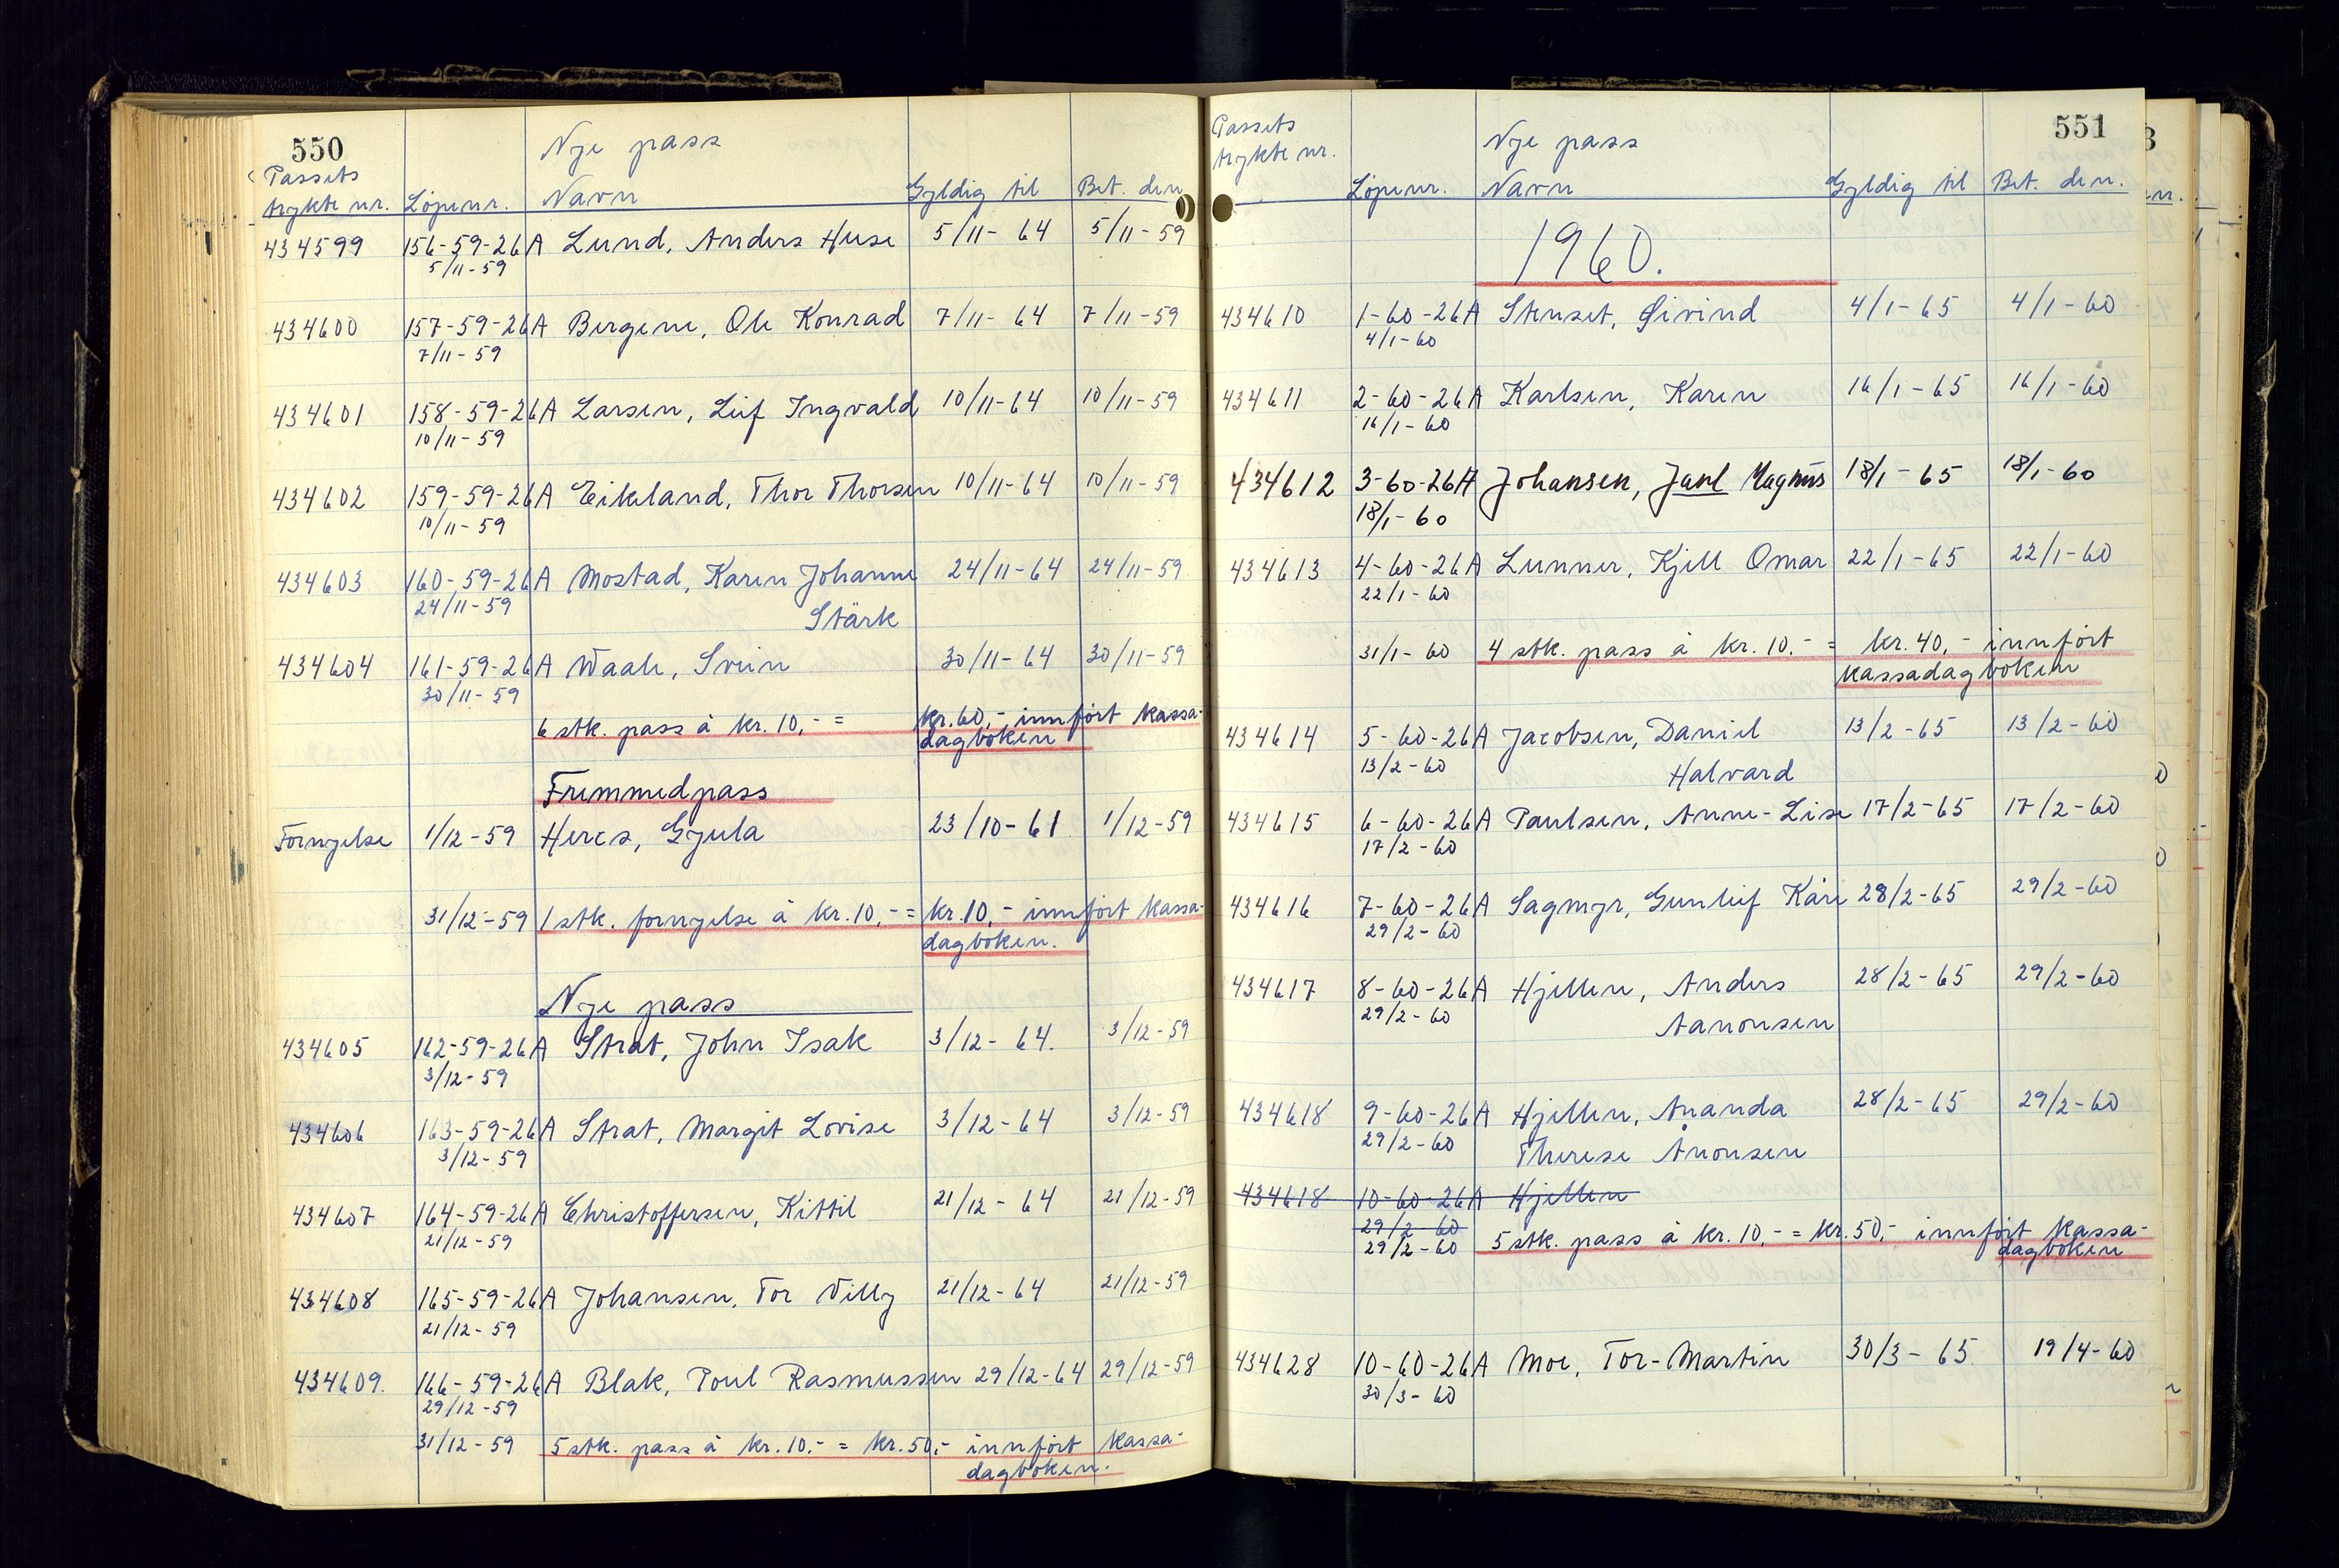 550
Nye pass
Passets
trykte nr. Løpenr. Navn Gyldig til Bet. den
434599 156-59-26A Lund, Anders Huse 5/11-64 5/11-59
5/11-59
434600 157-59-26A Bergene, Ole Konrad 7/11-64 7/11-59
7/11-59
434601 158-59-26A Larsen, Leif Ingvald 10/11-64 10/11-59
10/11-59
434602 159-59-26A Eikeland, Thor Thorsen 10/11-64 10/11-59
10/11-59
434603 160-59-26A Mostad, Karen Johanne 24/11-64 24/11-59
24/11-59 Stärk
434604 161-59-26A Waale, Svein 30/11-64 30/11-59
30/11-59
6 stk. pass á kr. 10,- = kr. 60,- innført kassa-
dagboken
Fremmedpass
Fornyelse 1/12-59 Hercs, Gyula 23/10-61 1/12-59
31/12-59 1 stk. fornyelse á kr. 10,- = kr. 10,- innført kassa-
dagboken.
Nye pass
434605 162-59-26A Strat, John Isak 3/12-64. 3/12-59
3/12-59
434606 163-59-26A Strat, Margit Lovise 3/12-64 3/12-59
3/12-59
434607 164-59-26A Christoffersen, Kittil 21/12-64 21/12-59
21/12-59
434608 165-59-26A Johansen, Tor Villy 21/12-64 21/12-59
21/12-59
434609. 166-59-26A Blak, Poul Rasmussen 29/12-64 29/12-59
29/12-59
31/12-59 5 stk. pass á kr. 10,- = kr. 50,- innført kassa-
dagboken.
551
Passets Nye pass
trykte nr. Løpenr. Navn Gyldig til Bet. den.
1960.
434610 1-60-26A Stenset, Øivind 4/1-65 4/1-60
4/1-60
434611 2-60-26A Karlsen, Karen 16/1-65 16/1-60
16/1-60
434612 3-60-26A Johansen, Jarl Magnus 18/1-65 18/1-60
18/1-60
434613 4-60-26A Lunner, Kjell Omar 22/1-65 22/1-60
22/1-60
31/1-60 4 stk. pass á kr. 10.- = kr. 40,- innført
kassadagboken
434614 5-60-26A Jacobsen, Daniel 13/2-65 13/2-60
13/2-60 Halvard
434615 6-60-26A Paulsen, Anne-Lise 17/2-65 17/2-60
17/2-60
434616 7-60-26A Sagmyr, Gunleif Kåre 28/2-65 29/2-60
29/2-60
434617 8-60-26A Hjellen, Anders 28/2-65 29/2-60
29/2-60 Aanonsen
434618 9-60-26A Hjellen, Ananda 28/2-65 29/2-60
29/2-60 Therese Ånonsen
434618 10-60-26A Hjellen
29/2-60
29/2-60 5 stk. pass á kr. 10,- = kr. 50,- innført kassa-
dagboken
434628 10-60-26A Moe, Tor-Martin 30/3-65 19/4-60
30/3-60